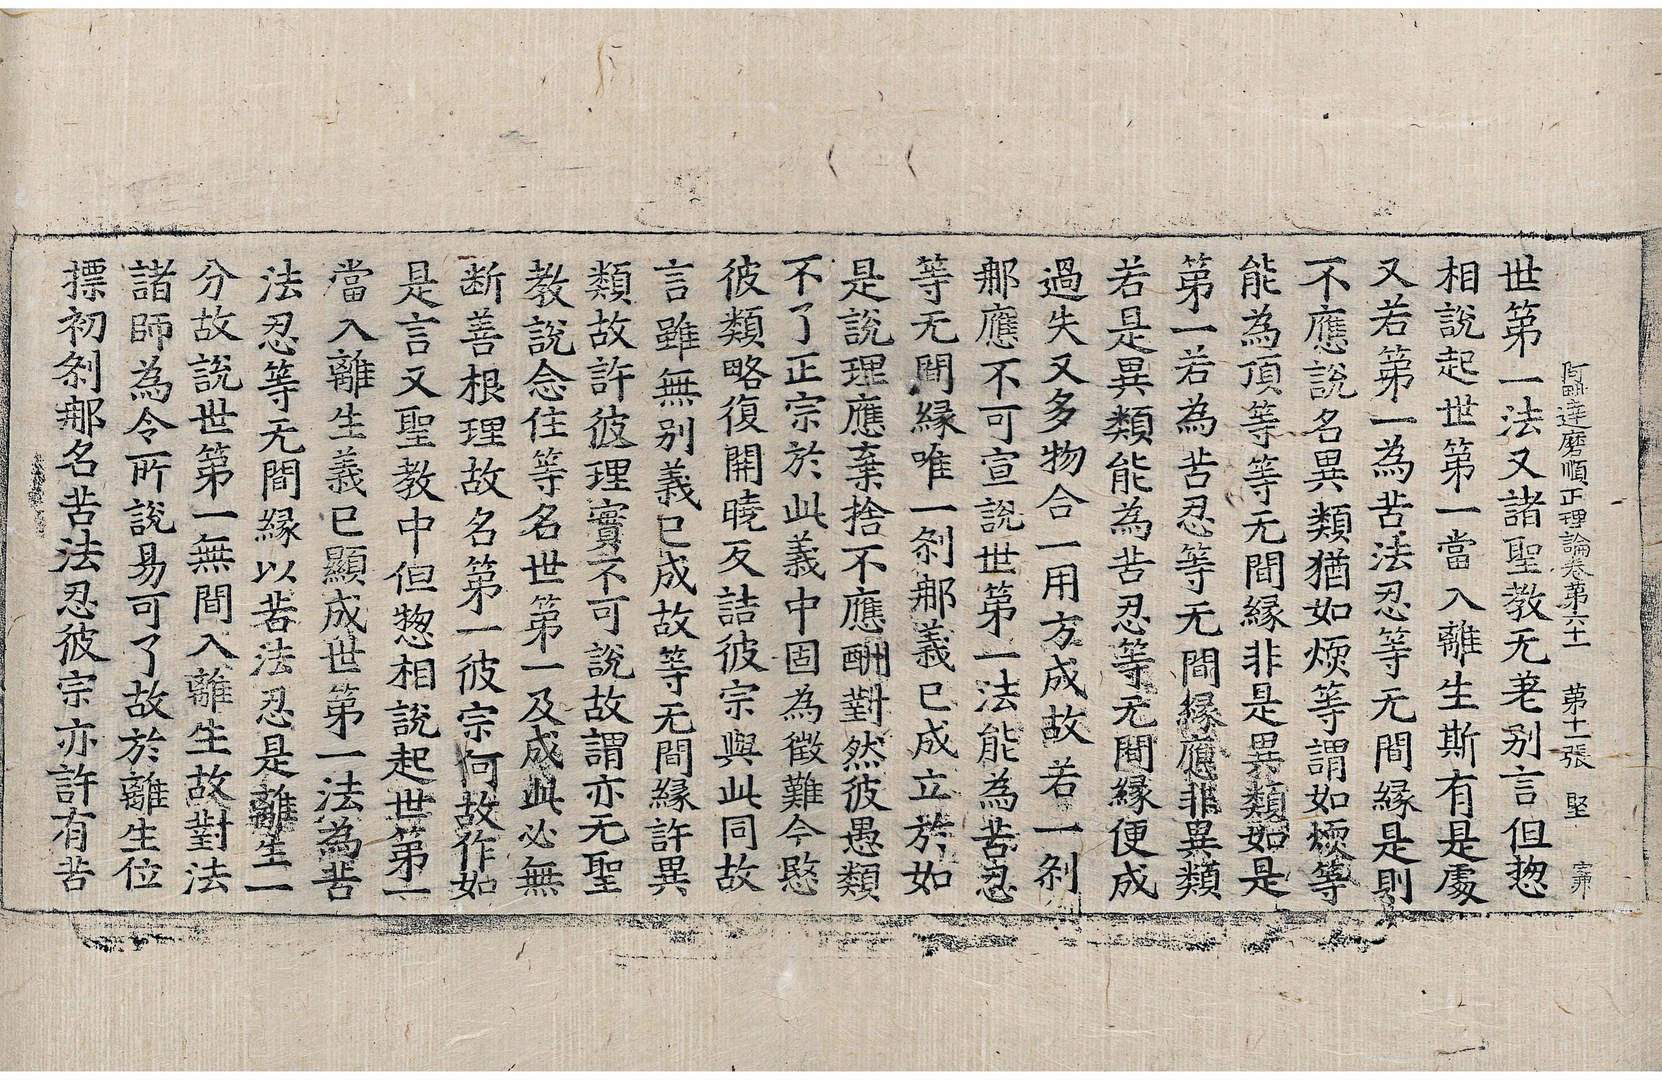 阿毗達磨順正理論卷第六十一 第十一張 堅
世第一法又諸聖教无差别言但揔
相說起世第一當入離生斯有是處
又若第一為苦法忍等无間緣是則
不應說名異類猶如煗等謂如煗等
能為頂等等无間緣非是異類如是
第一若為苦忍等无間緣應非異類
若是異類能為苦忍等无間緣便成
過失又多物合一用方成故若一剎
那應不可宣說世第一法能為苦忍
等无間緣唯一剎那義已成立於如
是說理應棄捨不應酬對然彼愚類
不了正宗於此義中固為徵難今愍
彼類略復開曉反詰彼宗與此同故
言雖無别義已成故等无間緣許異
類故許彼理實不可說故謂亦无聖
教說念住等名世第一及成此必無
断善根理故名第一彼宗何故作如
是言又聖教中但揔相說起世第一
當入離生義已顯成世第一法為苦
法忍等无間緣以苦法忍是離生一
分故說世第一無間入離生故對法
諸師為令所說易可了故於離生位
摽初剎那名苦法忍彼宗亦許有苦